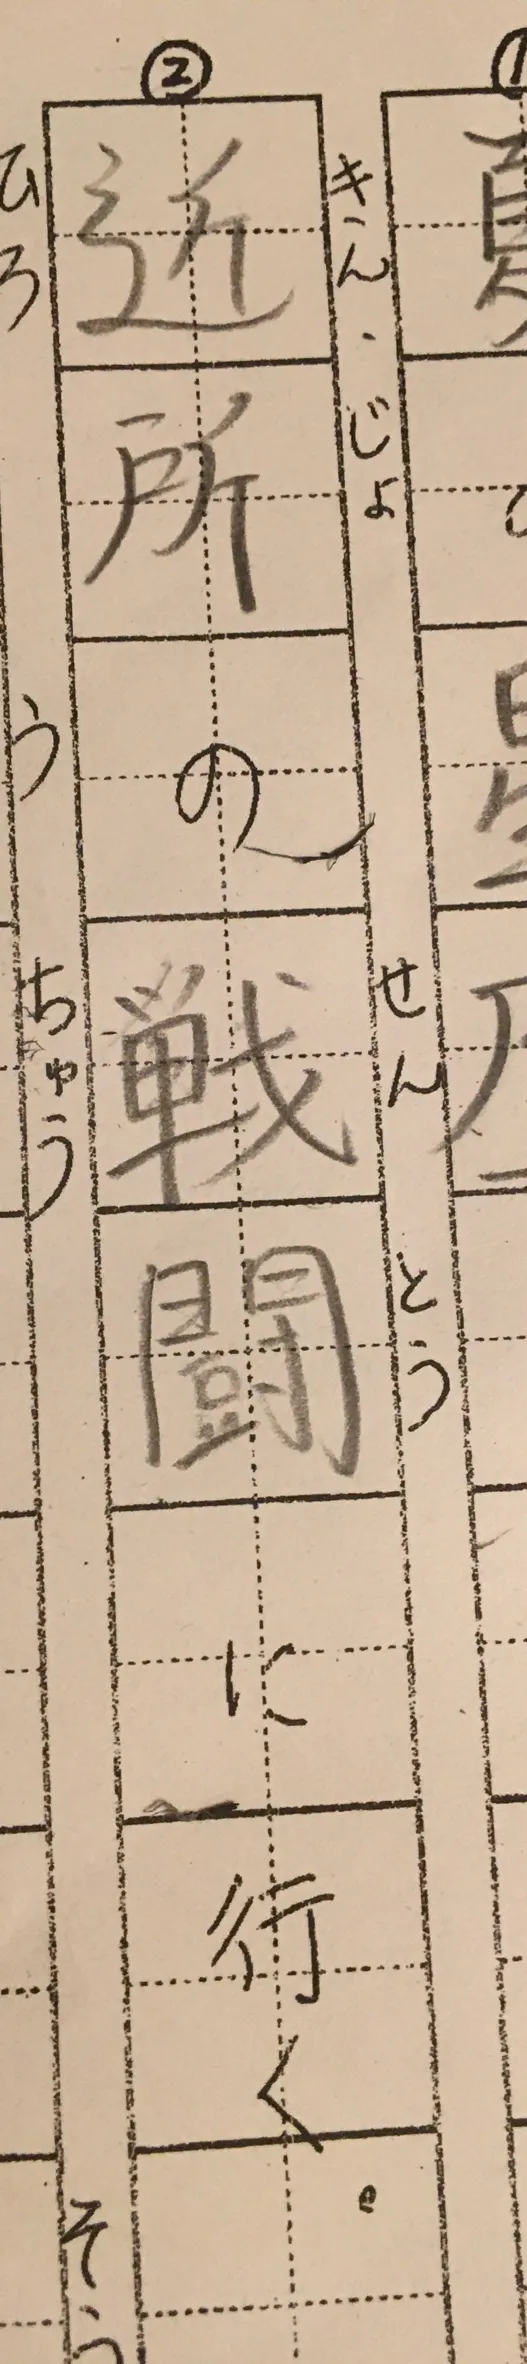 ②
きん・じょ せんとう
近所の戦闘に行く。
ひろ うちゅう そう